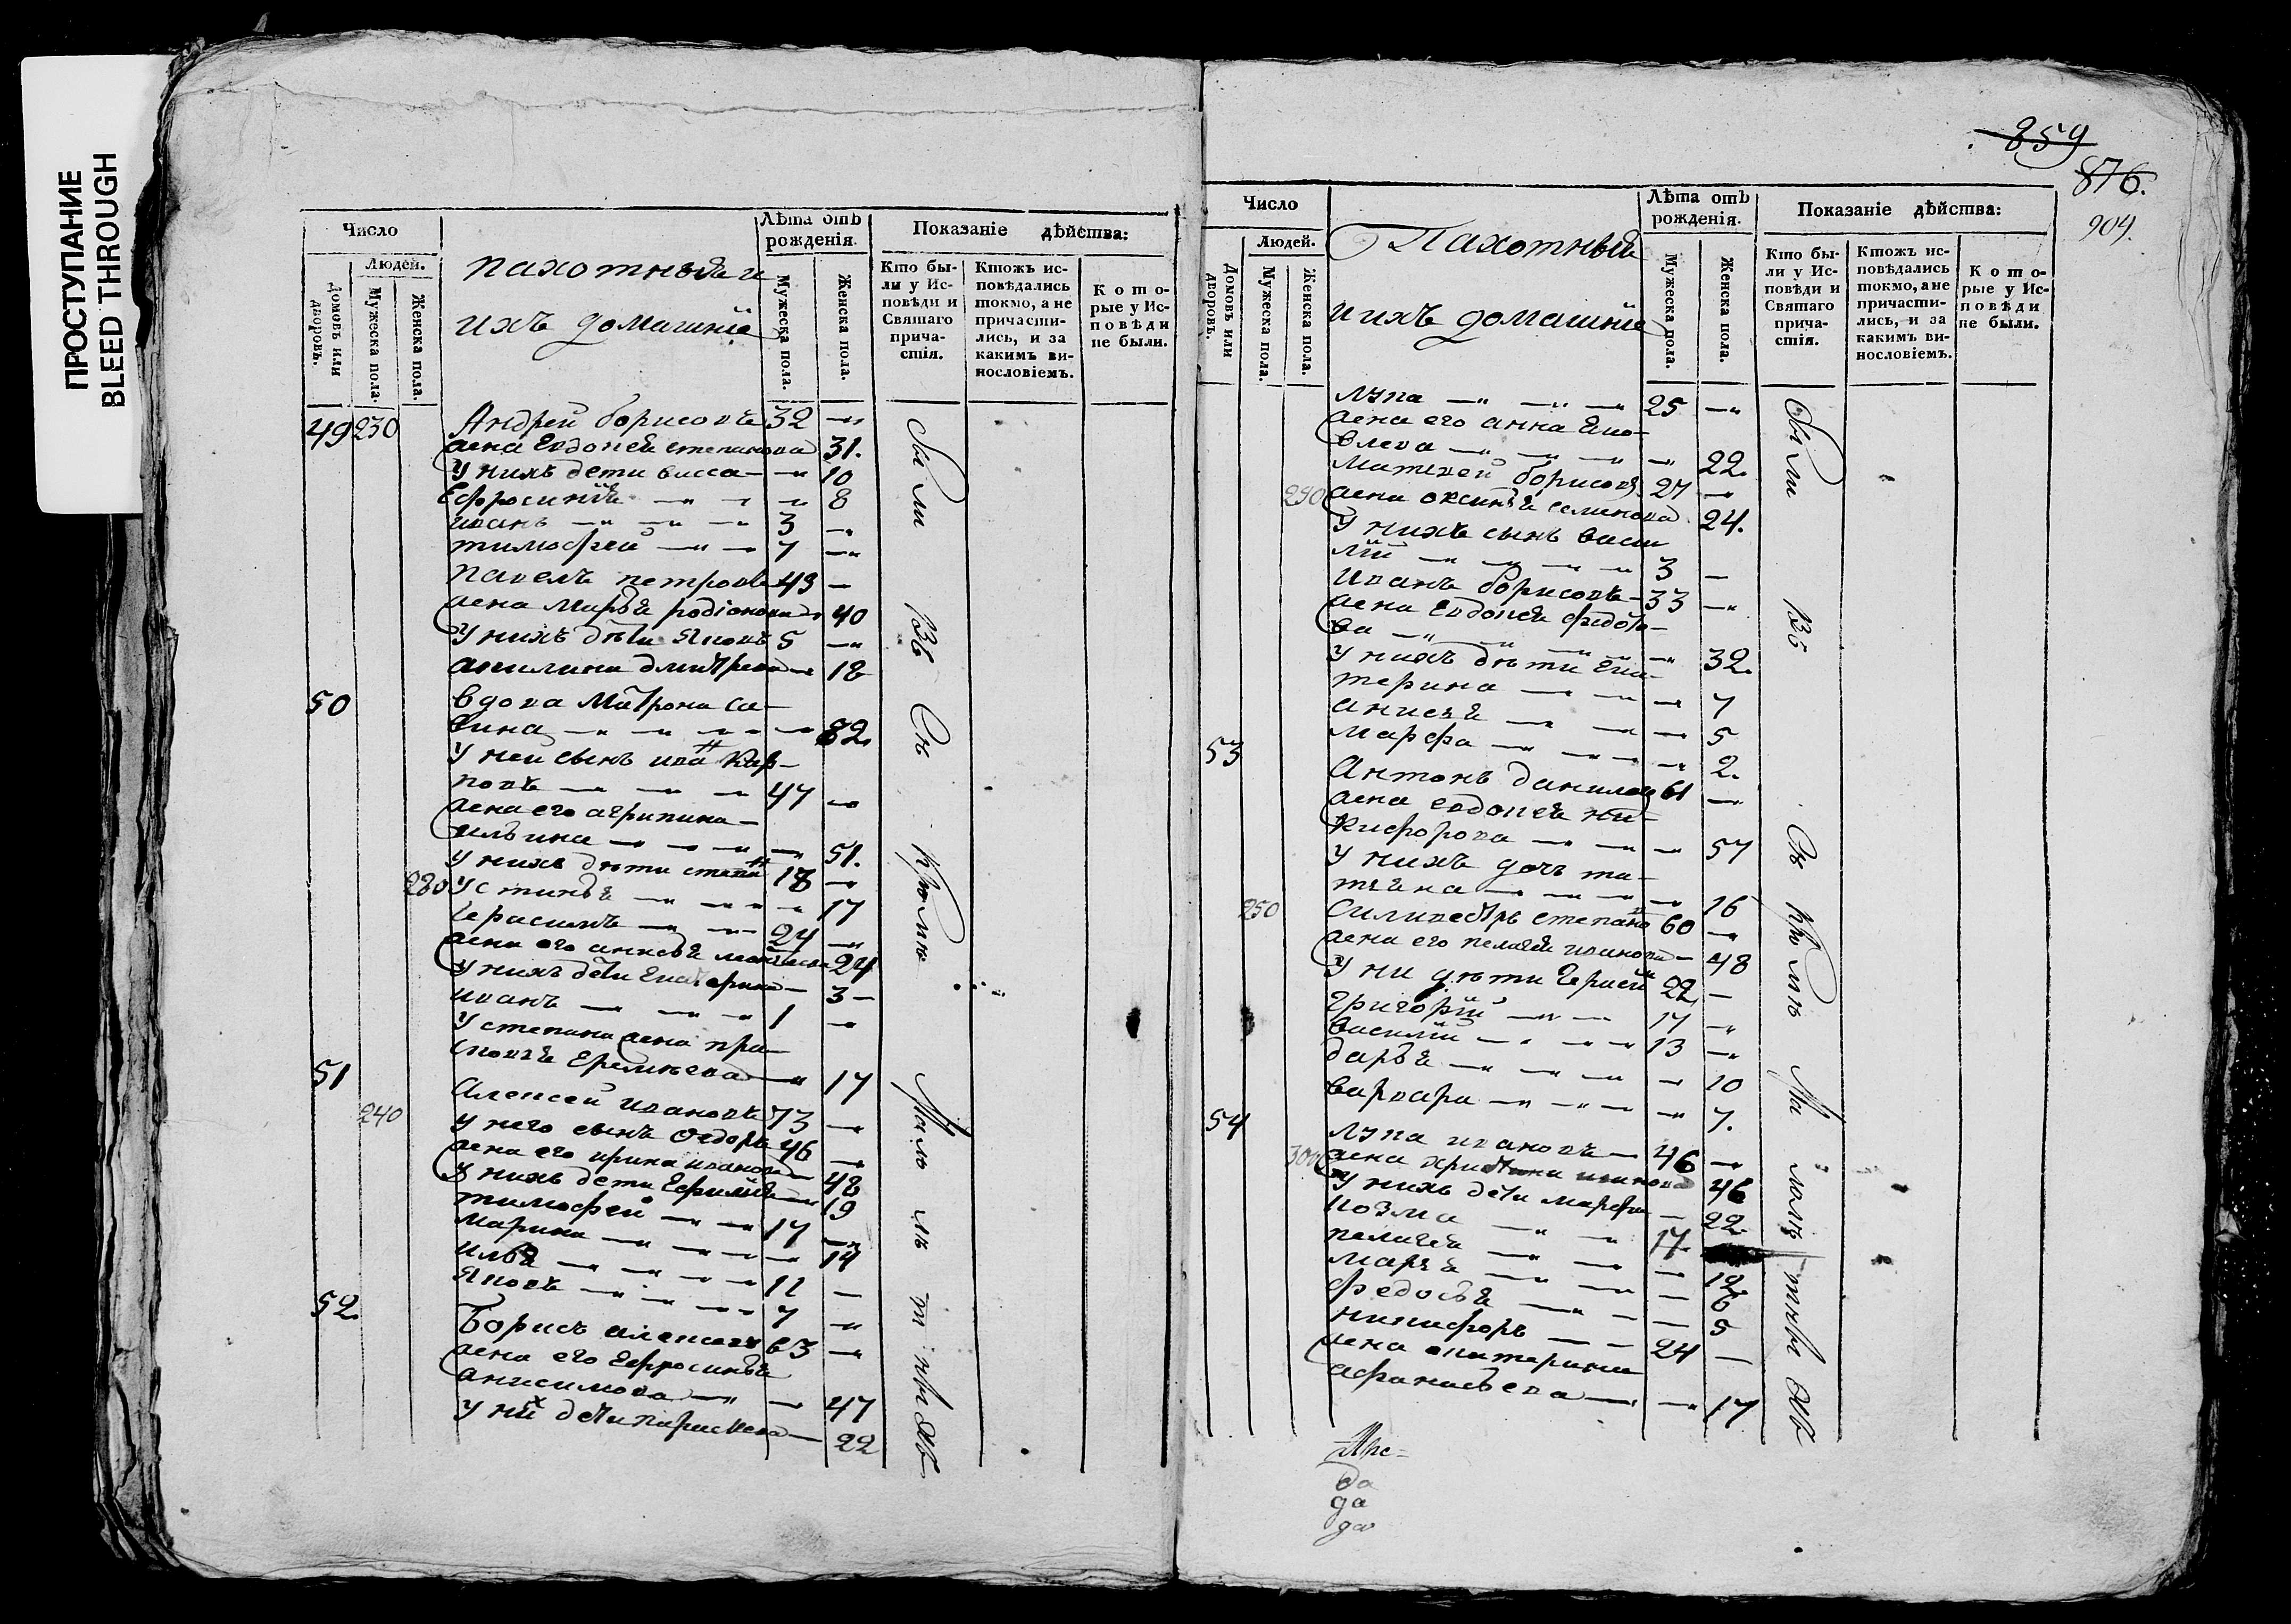 ПРОСТУПАНИЕ
BLEED THROUGH
Число
Людей.
Домовъ или дворовъ.
Мужеска пола.
Женска пола.
пахотныя и
ихъ домашнїе
Лѣта отъ рожденія.
Мужеска пола.
Женска пола.
Показаніе дѣйства:
Кто бы-
ли у Ис-
повѣди и
Святаго
прича-
стія.
Ктожъ ис-
повѣдались
токмо, а не
причасти-
лись, и за
какимъ ви-
нословіемъ.
Кото-
рые у Ис-
повѣди
не были.
49 230 Андрей борисовъ 32 —
жена Евдокея степанова 31.
у нихъ дети васса — 10
Ефросинья — 8
иванъ — 3 —
тимофей — 7 —
павелъ петровъ 43 —
жена Марья родіонова 40
у нихъ дѣти Яковъ 5 —
акилина дмитрева — 18
50 вдова Матрона са-
вина — 82.
у неи сынъ ива н Кар-
повъ — 47 —
жена его агрипина —
ильина — 51.
у нихъ дѣти степа н 18 —
280 устинья — 17
Герасимъ — 24 —
жена его — 24
у нихъ дѣти Екатерина — 3 —
иванъ — 1 —
у степана жена пра-
сковья Еремѣева — 17
51 Алексей ивановъ 73 —
240 у него сынъ Ѳедоръ 46 —
жена его ирина иванова 48
у нихъ дети Ефимия 19
тимофей — 17 —
марина — 14
илья — 11 —
Яковъ — 7 —
52. Борисъ алексеевъ 63 —
жена его Ефросинья
анисимова — 47
у ни х дети параскева — 22
были въ Св
859
876.
904.
Число
Людей.
Домовъ или дворовъ.
Мужеска пола.
Женска пола.
Пахотныи
и ихъ домашнїе
Лѣта отъ рожденія.
Мужеска пола.
Женска пола.
Показаніе дѣйства:
Кто бы-
ли у Ис-
повѣди и
Святаго
прича-
стія.
Ктожъ ис-
повѣдались
токмо, а не
причасти-
лись, и за
какимъ ви-
нословіемъ.
Кото-
рые у Ис-
повѣди
не были.
лупа — 25 —
жена его анна Яко-
влева — 22.
Матвей борисовъ 27 —
290 жена оксинья семенова 24.
у нихъ сынъ васи
лїи — 3 —
иванъ борисовъ — 33 —
жена Евдокея федото-
ва — 32.
у нихъ дѣти Ека-
терина — 7
анисья — 5
марфа — 2.
53 Антонъ данилов 61 —
жена евдокея ни-
кифорова — 57
у нихъ дочь та-
тьяна — 16
250 Силивестръ степано в 60 —
жена его пелагея иванова — 48
у ни дѣти 22 —
григорїй — 17 —
василїй — 13 —
дарья — 10
варвара — 7.
54 лупа ивановъ — 46 —
300 жена христина иванова 46
у нихъ дѣти марфа — 22.
козма — 17.
пелагея — 12.
марья — 6
федосья — 5
никифоръ — 24 —
жена катерина
афанасьева — 17
были въ Св
да
да
да